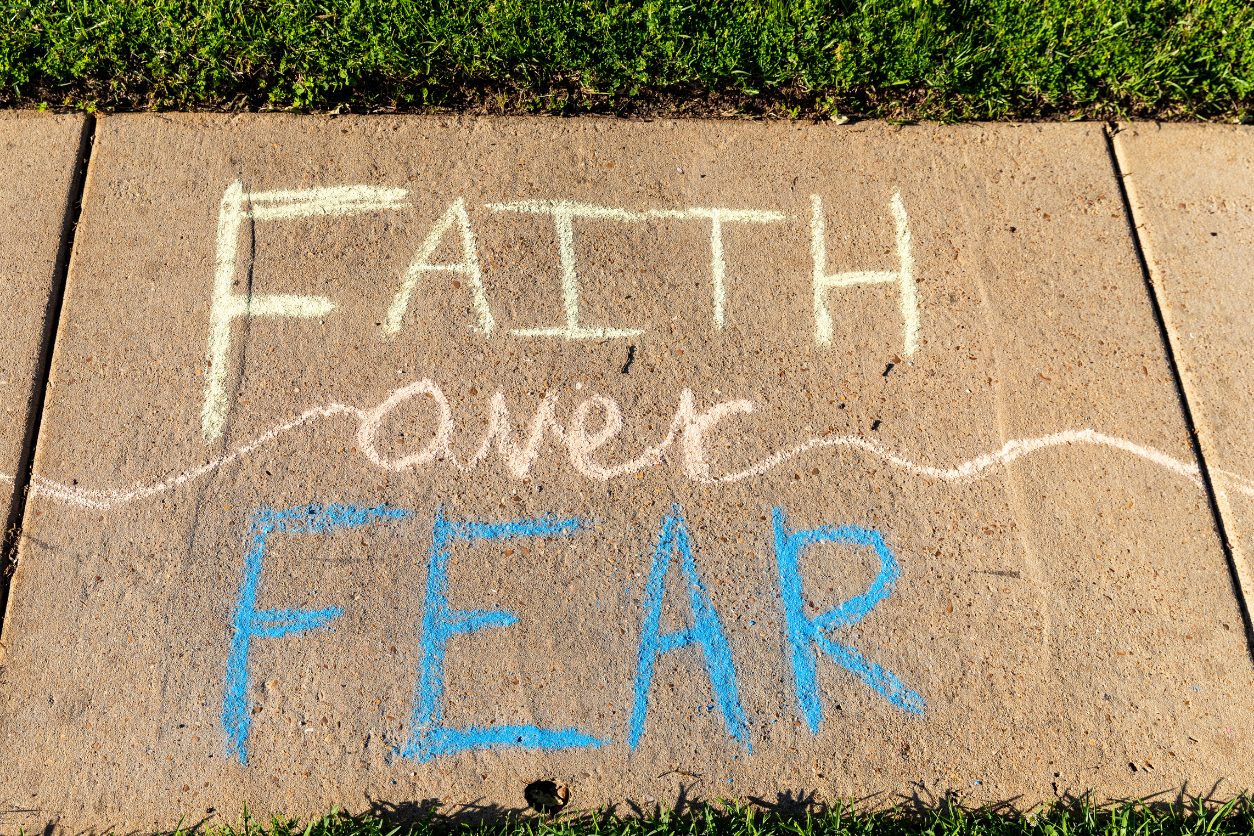 FAITH
over
FEAR